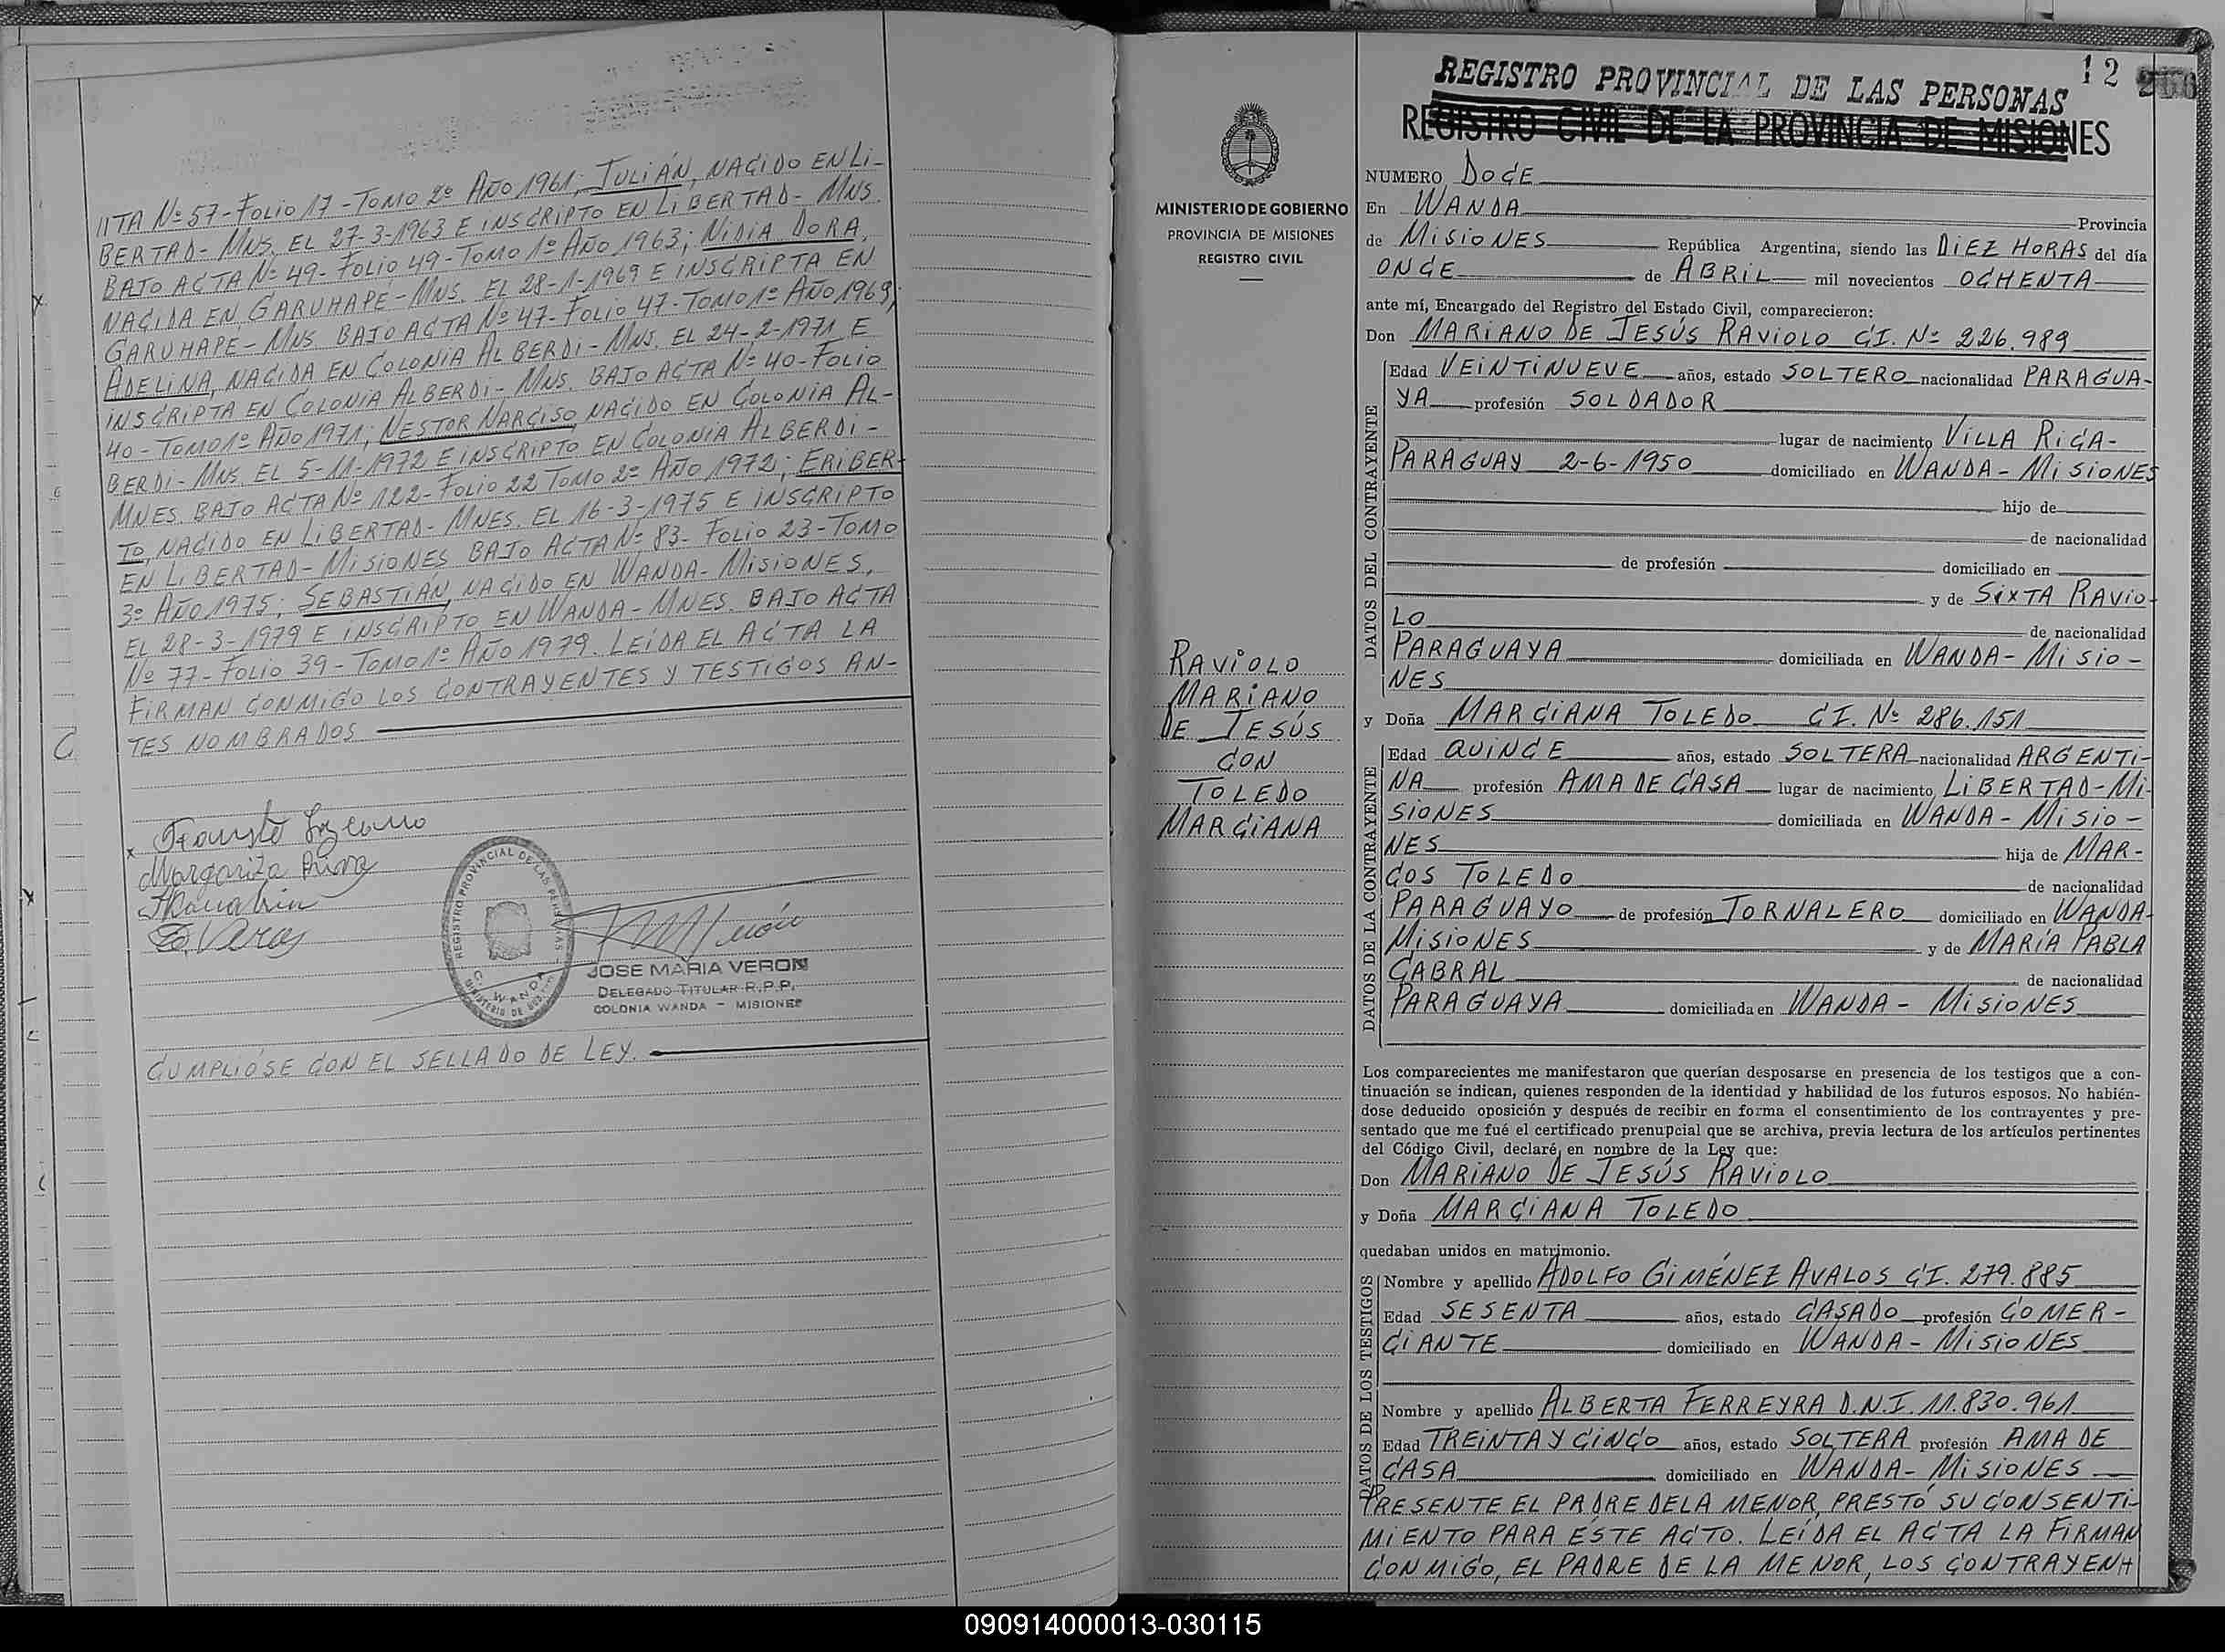 TA Nº 57-FOLIO 17-TOMO 2º AÑO 1961; JULIÁN, NACIDO EN LI-
BERTAD-MNS. EL 27-3-1963 E INSCRIPTO EN LIBERTAD-MNS.
BAJO ACTA Nº 49-FOLIO 49-TOMO 1º AÑO 1963; NIDIA DORA,
NACIDA EN GARUHAPE-MNS. EL 28-1-1969 E INSCRIPTA EN
GARUHAPE-MNS. BAJO ACTA Nº 47-FOLIO 47-TOMO 1º AÑO 1969;
ADELINA, NACIDA EN COLONIA ALBERDI-MNS. EL 24-2-1971 E
INSCRIPTA EN COLONIA ALBERDI-MNS. BAJO ACTA Nº 40-FOLIO
40-TOMO 1º AÑO 1971; NESTOR NARCISO, NACIDO EN COLONIA AL-
BERDI-MNS. EL 5-11-1972 E INSCRIPTO EN COLONIA ALBERDI-
MNES. BAJO ACTA Nº 122-FOLIO 22 TOMO 2º AÑO 1972; ERIBER-
TO, NACIDO EN LIBERTAD-MNES. EL 16-3-1975 E INSCRIPTO
EN LIBERTAD-MISIONES BAJO ACTA Nº 83-FOLIO 23-TOMO
3º AÑO 1975; SEBASTIÁN, NACIDO EN WANDA-MISIONES,
EL 28-3-1979 E INSCRIPTO EN WANDA-MNES. BAJO ACTA
Nº 77-FOLIO 39-TOMO 1º AÑO 1979. LEÍDA EL ACTA LA
FIRMAN CONMIGO LOS CONTRAYENTES Y TESTIGOS AN-
TES NOMBRADOS
Margarita
REGISTRO PROVINCIAL DE LAS PERSONAS
WANDA
JOSE MARIA VERON
DELEGADO TITULAR R.P.P.
COLONIA WANDA - MISIONES
CUMPLIÓSE CON EL SELLADO DE LEY.
MINISTERIO DE GOBIERNO
PROVINCIA DE MISIONES
REGISTRO CIVIL
RAVIOLO
MARIANO
DE JESÚS
CON
TOLEDO
MARCIANA
12
REGISTRO PROVINCIAL DE LAS PERSONAS
REGISTRO CIVIL DE LA PROVINCIA DE MISIONES
NUMERO DOCE
En WANDA Provincia
de MISIONES República Argentina, siendo las DIEZ HORAS del día
ONCE de ABRIL mil novecientos OCHENTA
ante mí, Encargado del Registro del Estado Civil, comparecieron:
Don MARIANO DE JESÚS RAVIOLO C.I. Nº 226.989
DATOS DEL CONTRAYENTE
Edad VEINTINUEVE años, estado SOLTERO nacionalidad PARAGUA-
YA profesión SOLDADOR
lugar de nacimiento VILLA RICA-
PARAGUAY 2-6-1950 domiciliado en WANDA-MISIONES
hijo de
de nacionalidad
de profesión domiciliado en
y de SIXTA RAVIO-
LO de nacionalidad
PARAGUAYA domiciliada en WANDA-MISIO-
NES
y Doña MARCIANA TOLEDO C.I. Nº 286.151
DATOS DE LA CONTRAYENTE
Edad QUINCE años, estado SOLTERA nacionalidad ARGENTI-
NA profesión AMA DE CASA lugar de nacimiento LIBERTAD-MI-
SIONES domiciliada en WANDA-MISIO-
NES hija de MAR-
COS TOLEDO de nacionalidad
PARAGUAYO de profesión JORNALERO domiciliado en WANDA-
MISIONES y de MARÍA PABLA
CABRAL de nacionalidad
PARAGUAYA domiciliada en WANDA-MISIONES
Los comparecientes me manifestaron que querían desposarse en presencia de los testigos que a con-
tinuación se indican, quienes responden de la identidad y habilidad de los futuros esposos. No habién-
dose deducido oposición y después de recibir en forma el consentimiento de los contrayentes y pre-
sentado que me fué el certificado prenupcial que se archiva, previa lectura de los artículos pertinentes
del Código Civil, declaré en nombre de la Ley que:
Don MARIANO DE JESÚS RAVIOLO
y Doña MARCIANA TOLEDO
quedaban unidos en matrimonio.
DATOS DE LOS TESTIGOS
Nombre y apellido ADOLFO GIMÉNEZ AVALOS C.I. 279.885
Edad SESENTA años, estado CASADO profesión COMER-
CIANTE domiciliado en WANDA-MISIONES
Nombre y apellido ALBERTA FERREYRA D.N.I. 11.830.961
Edad TREINTA Y CINCO años, estado SOLTERA profesión AMA DE
CASA domiciliado en WANDA-MISIONES
PRESENTE EL PADRE DE LA MENOR, PRESTÓ SU CONSENTI-
MIENTO PARA ÉSTE ACTO. LEÍDA EL ACTA LA FIRMAN
CONMIGO, EL PADRE DE LA MENOR, LOS CONTRAYEN-
090914000013-030115